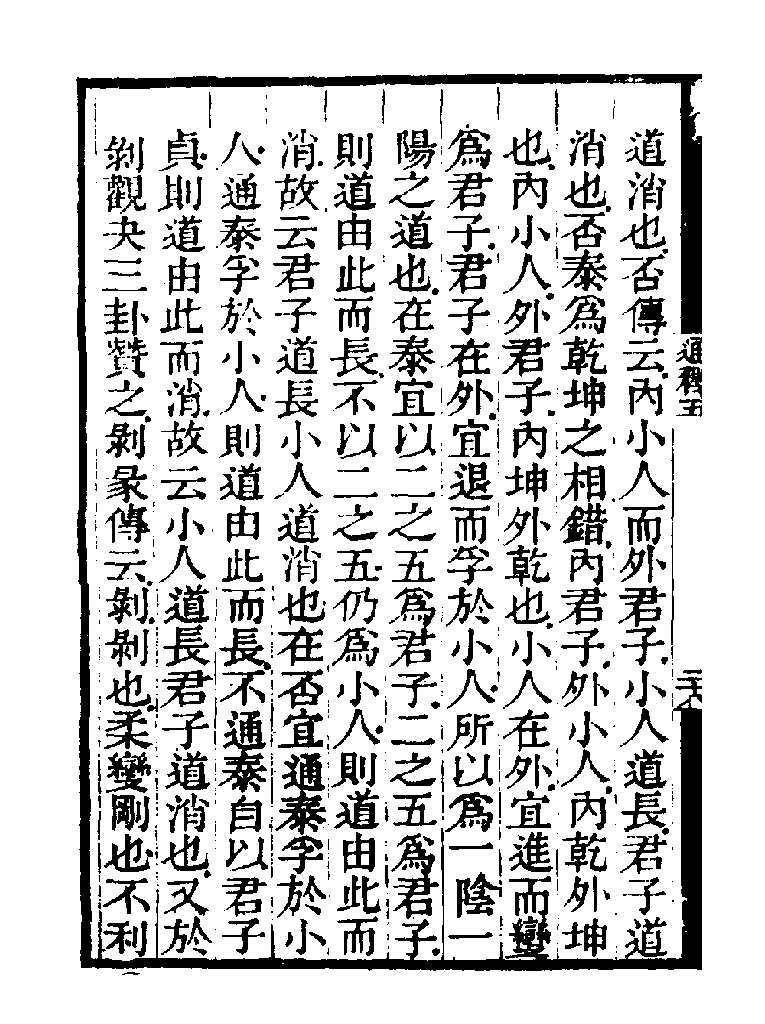 道消也否傳云內小人而外君子小人道長君子道
消也否泰爲乾坤之相錯內君子外小人內乾外坤
也內小人外君子內坤外乾也小人在外宜進而變
爲君子君子在外宜退而孚於小人所以爲一陰一
陽之道也在泰宜以二之五爲君子二之五爲君子
則道由此而長不以二之五仍爲小人則道由此而
消故云君子道長小人道消也在否宜通泰孚於小
人通泰孚於小人則道由此而長不通泰自以君子
貞則道由此而消故云小人道長君子道消也又於
剝觀夬三卦贊之剝彖傳云剝剝也柔變剛也不利
通釋五